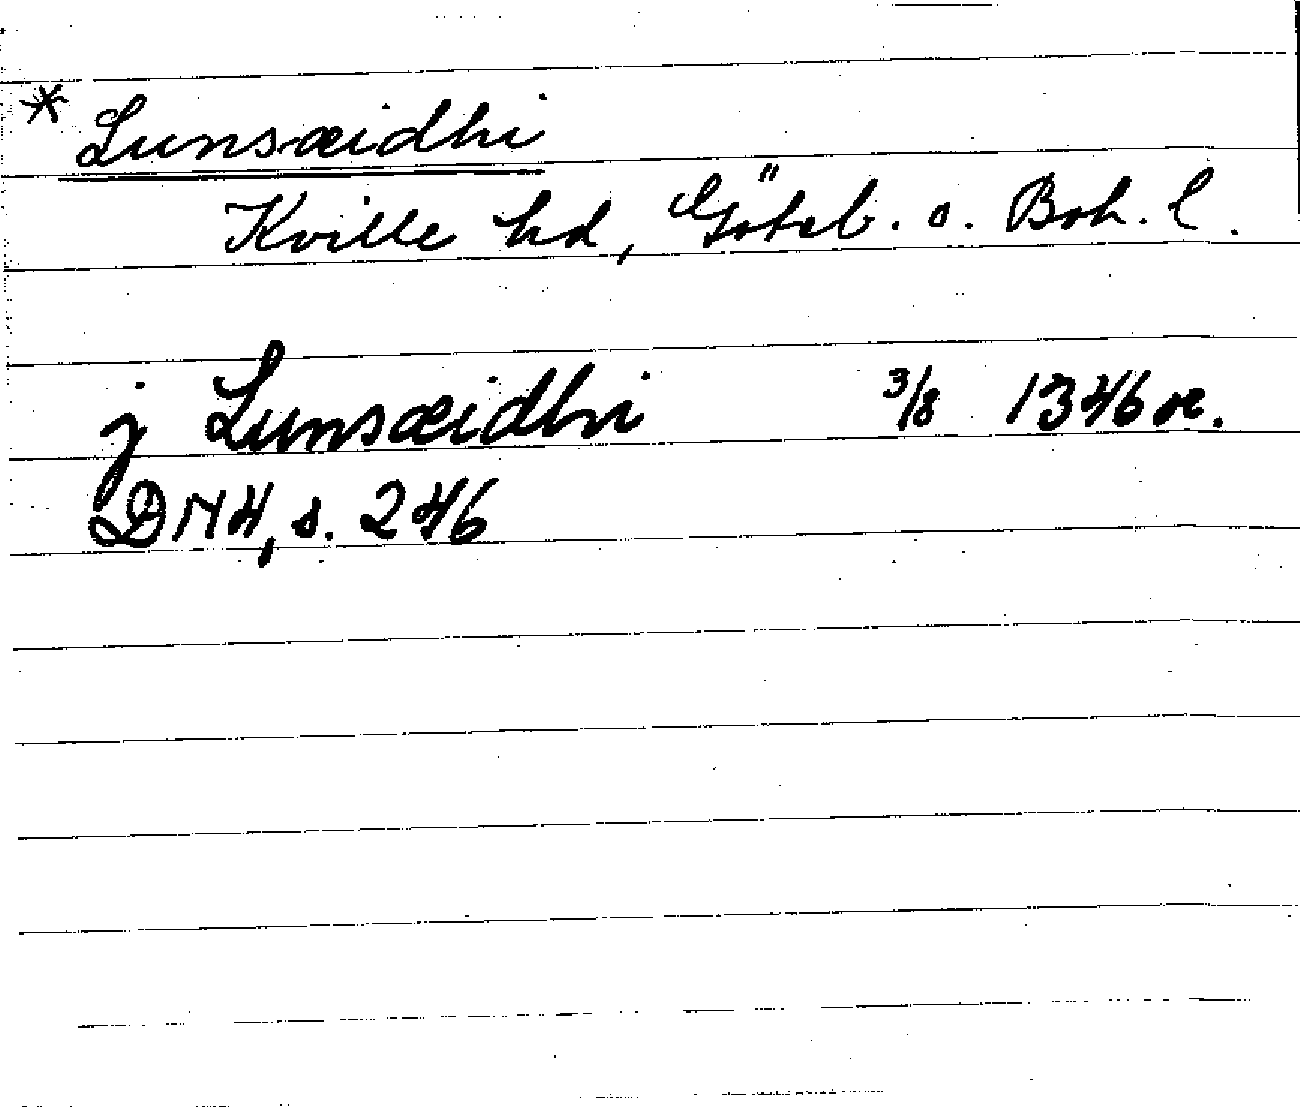 * Lunsæidhi
Kville hd, Göteb. o. Boh. l.
j Lunsæidhi 3/8 1346 or.
DN 4, s. 246